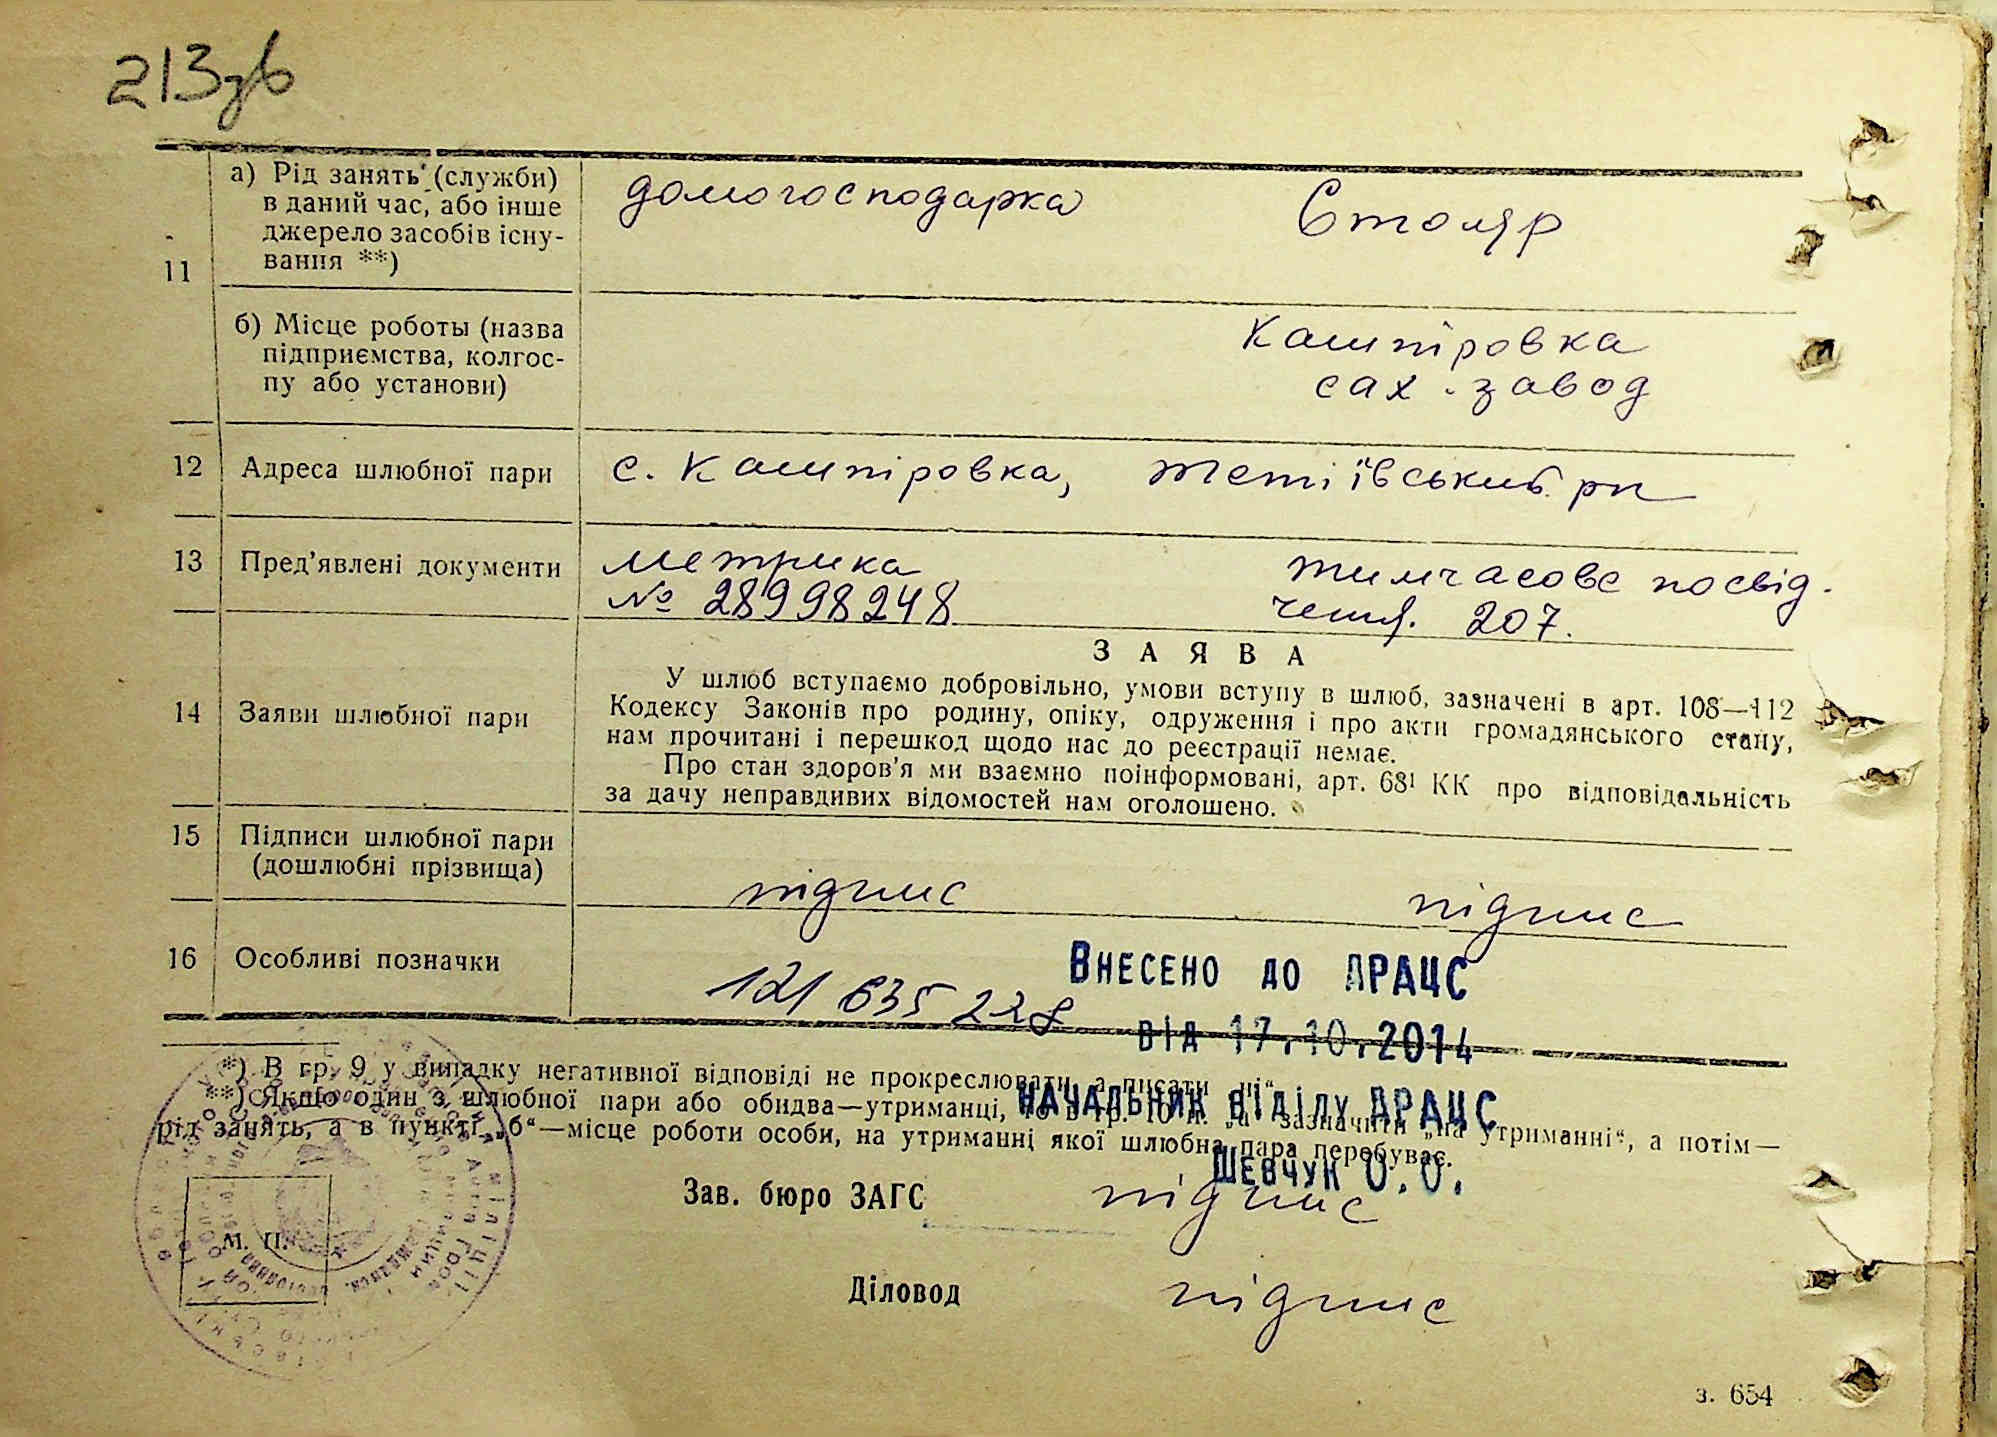 213зв
а) Рід занять (служби)
в даний час, або інше
джерело засобів існу-
вання **)
домогосподарка
Столяр
11
б) Місце роботи (назва
підприємства, колгос-
пу або установи)
Кашпіровка
сах. завод
12 Адреса шлюбної пари
с. Кашпіровка, Тетіївський рн
13 Пред'явлені документи
метрика
№ 28998248
тимчасове посвід.
чення. 207.
14 Заяви шлюбної пари
ЗАЯВА
У шлюб вступаємо добровільно, умови вступу в шлюб, зазначені в арт. 108—112
Кодексу Законів про родину, опіку, одруження і про акти громадянського стану,
нам прочитані і перешкод щодо нас до реєстрації немає.
Про стан здоров'я ми взаємно поінформовані, арт. 68¹ КК про відповідальність
за дачу неправдивих відомостей нам оголошено.
15 Підписи шлюбної пари
(дошлюбні прізвища)
підпис
підпис
16 Особливі позначки
121 635 228
Внесено до ДРАЦС
від 17.10.2014
Начальник відділу ДРАЦС
Шевчук О.О.
*) В гр. 9 у випадку негативної відповіді не прокреслювати, а писати „ні“
**) Якщо один з шлюбної пари або обидва—утриманці, то в гр. 10 п. „а“ зазначити „на утриманні“, а потім—
рід занять, а в пункті „б“—місце роботи особи, на утриманні якої шлюбна пара перебуває.
Зав. бюро ЗАГС
підпис
М. П.
Діловод
підпис
з. 654